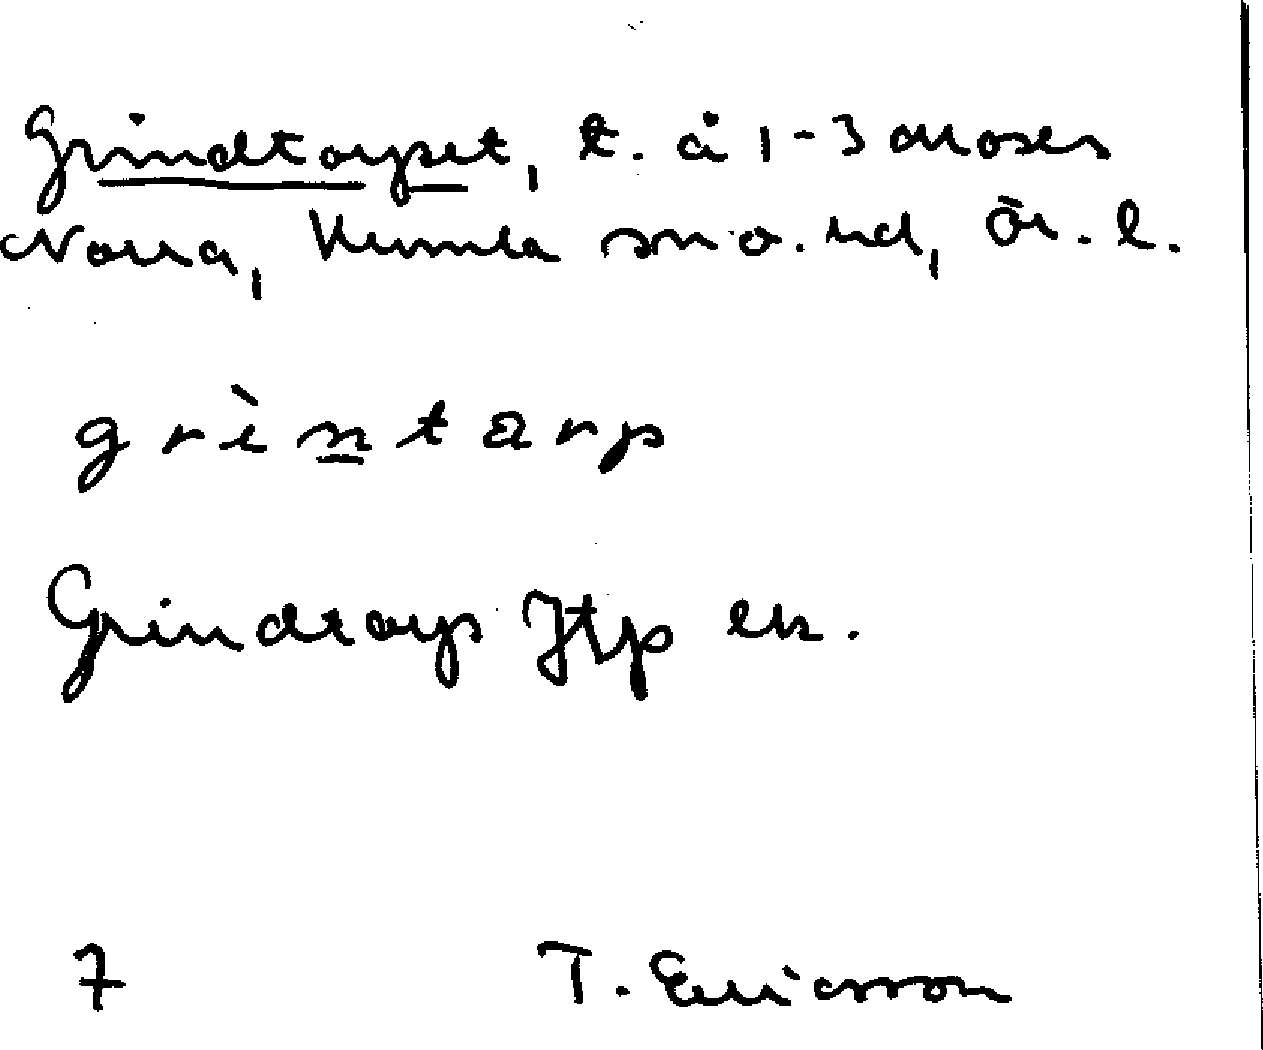 Grindtorpet, t. å 1-3 Moses
Norra, Kumla sn o. hd, Ör. l.
grìntarp
Grindtorp Jtp ek.
7 T. Ericsson